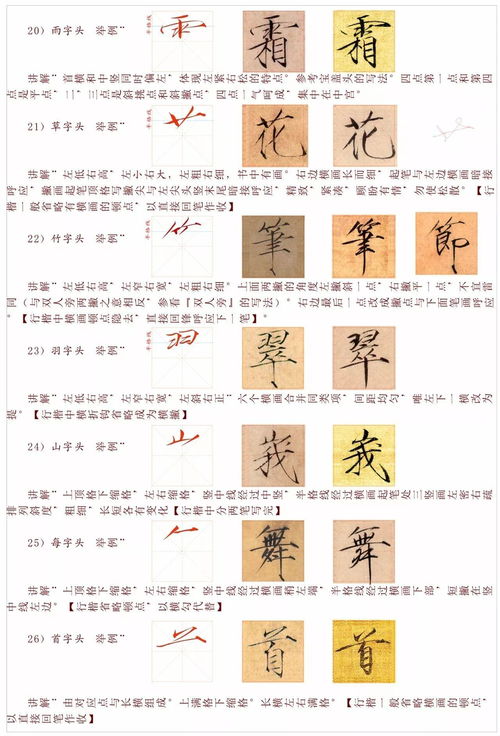 20）雨字头 举例：
半格线
霜
霜
讲解：首横和中竖同时偏左，体现左紧右松的特点。参考宝盖头的写法。四点第一点和第四
点是平点，二，三点是斜挑点和斜撇点，四点一气呵成，集中在中宫。
21）草字头 举例：
半格线
花
花
讲解：左低右高，左小右大，左粗右细，书中有画。右边横画长而细，起笔与左边横画暗接
呼应，撇画起笔顶格写撇尖与左尖头竖末尾暗接呼应，精致，紧凑，顾盼有情，勿使松散。【行
楷一般省略有横画的顿点，以直接回笔作收】
22）竹字头 举例：
半格线
筆
筆
節
讲解：左低右高，左窄右宽，左粗右细。上面两撇的角度左撇斜一点，右撇平一点，不宜雷
同（与双人旁两撇之意相反，参看『双人旁』的写法）。右边最后一点改成撇点与下面笔画呼应
。【行楷中横画顿点隐去，直接回锋呼应下一笔】。
23）羽字头 举例：
半格线
翠
翠
讲解：左低右高，左窄右宽，左斜右正：六个横画合并同类项，间距均匀，唯左下一横改为
提。【行楷中横折钩省略成为横撇】
24）山字头 举例：
半格线
峩
峩
讲解：上顶格下缩格，左右缩格，竖中线经过中竖，半格线经过横画起笔处三竖画左密右疏
排列斜度，粗细，长短各有变化【行楷中分两笔写完】
25）每字头 举例：
半格线
舞
舞
讲解：上顶格下缩格，左右缩格，竖中线经过横画稍左端，半格线经过横画下部，短撇在竖
中线左边。【行楷省略顿点，以横勾代替】
26）首字头 举例：
半格线
首
首
讲解：由对应点与长横组成。上满格下缩格。长横左右满格。【行楷一般省略横画的顿点，
以直接回笔作收】